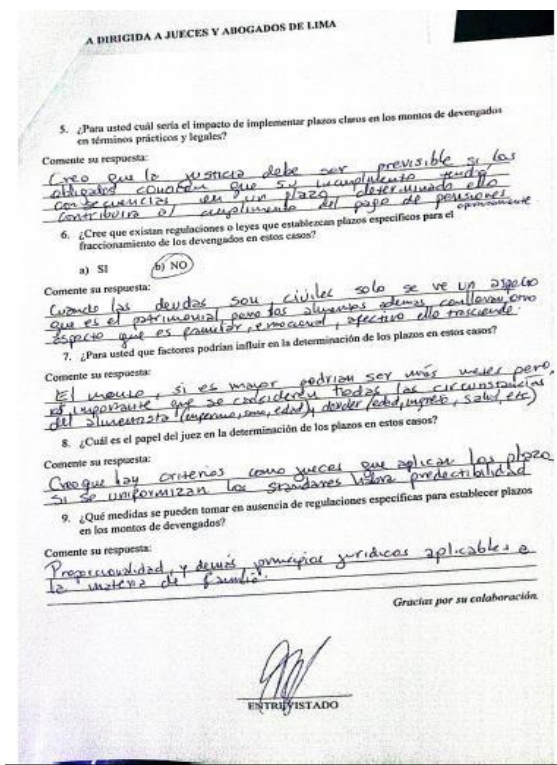 A DIRIGIDA A JUECES Y ABOGADOS DE LIMA
5. ¿Para usted cuál sería el impacto de implementar plazos claros en los montos de devengados
en términos prácticos y legales?
Comente su respuesta:
Creo que la justicia debe ser previsible si los
obligados conocen que su incumplimiento tendra
consecuencias en un plazo determinado ello
contribuira al cumplimiento del pago de pensiones
oportunamente
6. ¿Cree que existan regulaciones o leyes que establezcan plazos específicos para el
fraccionamiento de los devengados en estos casos?
a) SI b) NO
Comente su respuesta:
Cuando las deudas son civiles solo se ve un aspecto
que es el patrimonial, pero los alimentos ademas conllevan otro
aspecto que es familiar, emocional, afectivo ello trasciende.
7. ¿Para usted que factores podrían influir en la determinación de los plazos en estos casos?
Comente su respuesta:
El monto, si es mayor podrian ser más meses pero,
es importante que se consideren todas las circunstancias
del alimentista (enfermo, sano, edad), deudor (edad, ingreso, salud, etc)
8. ¿Cuál es el papel del juez en la determinación de los plazos en estos casos?
Comente su respuesta:
Creo que hay criterios como jueces que aplican los plazo
si se uniformizan los standares habra predectibilidad
9. ¿Qué medidas se pueden tomar en ausencia de regulaciones específicas para establecer plazos
en los montos de devengados?
Comente su respuesta:
Proporcionalidad, y demás, principios juridicos aplicables a
la materia de familia.
Gracias por su colaboración.
ENTREVISTADO